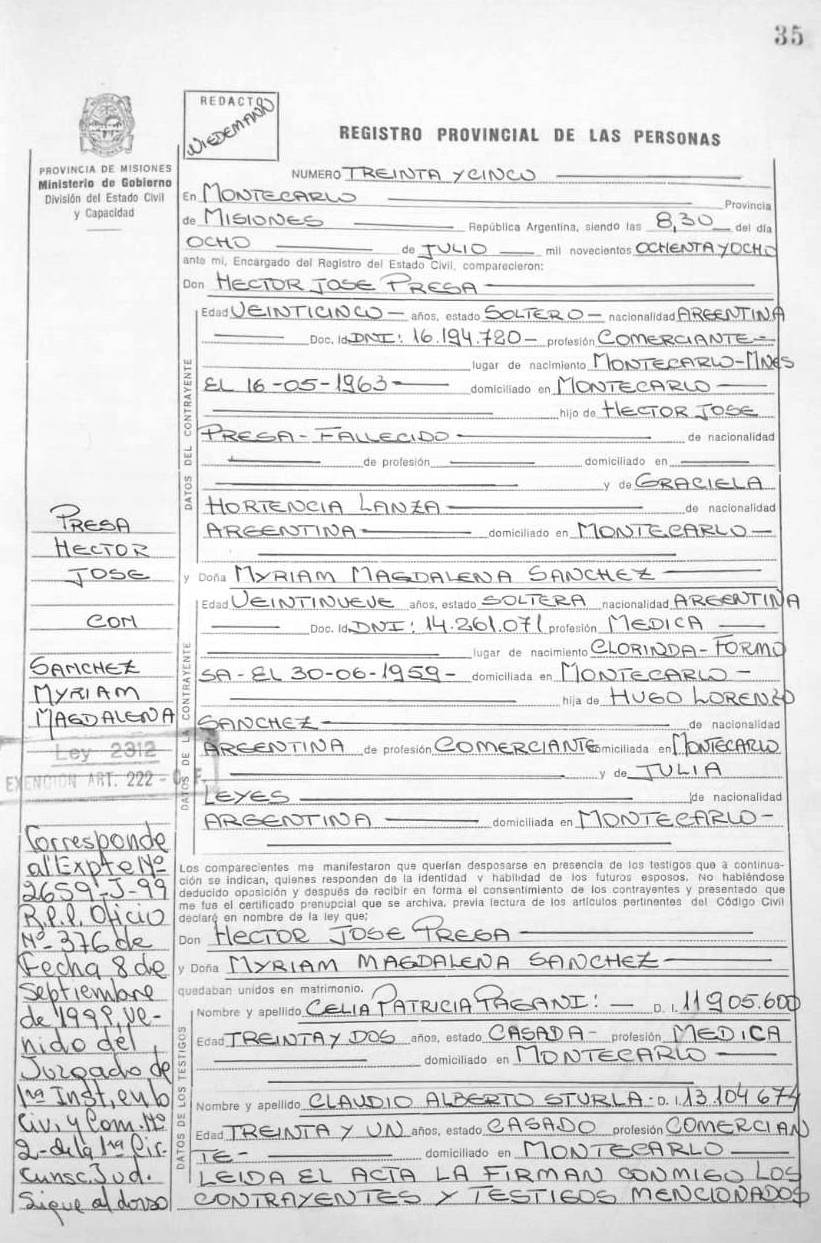 35
REDACTO
WIEDEMANN
REGISTRO PROVINCIAL DE LAS PERSONAS
PROVINCIA DE MISIONES
Ministerio de Gobierno
División del Estado Civil
y Capacidad
NUMERO TREINTA Y CINCO
En MONTECARLO Provincia
de MISIONES República Argentina, siendo las 8,30 del día
OCHO de JULIO mil novecientos OCHENTA Y OCHO
ante mi, Encargado del Registro del Estado Civil, comparecieron:
Don HECTOR JOSE PRESA
DATOS DEL CONTRAYENTE
Edad VEINTICINCO años, estado SOLTERO nacionalidad ARGENTINA
Doc. Id. DNI: 16.194.720 profesión COMERCIANTE
lugar de nacimiento MONTECARLO-MNES
EL 16-05-1963 domiciliado en MONTECARLO
hijo de HECTOR JOSE
PRESA - FALLECIDO de nacionalidad
de profesión domiciliado en
y de GRACIELA
HORTENCIA LANZA de nacionalidad
ARGENTINA domiciliado en MONTECARLO
y Doña MYRIAM MAGDALENA SANCHEZ
DATOS DE LA CONTRAYENTE
Edad VEINTINUEVE años, estado SOLTERA nacionalidad ARGENTINA
Doc. Id. DNI: 14.261.071 profesión MEDICA
lugar de nacimiento CLORINDA-FORMO
SA-EL 30-06-1959- domiciliada en MONTECARLO
hija de HUGO LORENZO
SANCHEZ de nacionalidad
ARGENTINA de profesión COMERCIANTE domiciliada en MONTECARLO
y de JULIA
LEYES de nacionalidad
ARGENTINA domiciliada en MONTECARLO-
Los comparecientes me manifestaron que querían desposarse en presencia de los testigos que a continua-
ción se indican, quienes responden de la identidad y habilidad de los futuros esposos. No habiéndose
deducido oposición y después de recibir en forma el consentimiento de los contrayentes y presentado que
me fue el certificado prenupcial que se archiva, previa lectura de los artículos pertinentes del Código Civil
declaré en nombre de la ley que:
Don HECTOR JOSE PRESA
y Doña MYRIAM MAGDALENA SANCHEZ
quedaban unidos en matrimonio.
DATOS DE LOS TESTIGOS
Nombre y apellido CELIA PATRICIA PAGANI: D. I. 11905.600
Edad TREINTA Y DOS años, estado CASADA- profesión MEDICA
domiciliado en MONTECARLO
Nombre y apellido CLAUDIO ALBERTO STURLA- D. I. 13.104.674
Edad TREINTA Y UN años, estado CASADO profesión COMERCIAN
TE- domiciliado en MONTECARLO
LEIDA EL ACTA LA FIRMAN CONMIGO LOS
CONTRAYENTES Y TESTIGOS MENCIONADOS
PRESA
HECTOR
JOSE
CON
SANCHEZ
MYRIAM
MAGDALENA
Ley 2312
EXENCION ART. 222 - C. F.
Corresponde
al Expte Nº
2659-J-99
R.P.P. Oficio
Nº-376 de
Fecha 8 de
Septiembre
de 1999, ve-
nido del
Juzgado de
1ra Inst, en lo
Civ. y Com. Nº
2-de la 1ra Cir-
cunsc. Jud.
Sigue al dorso